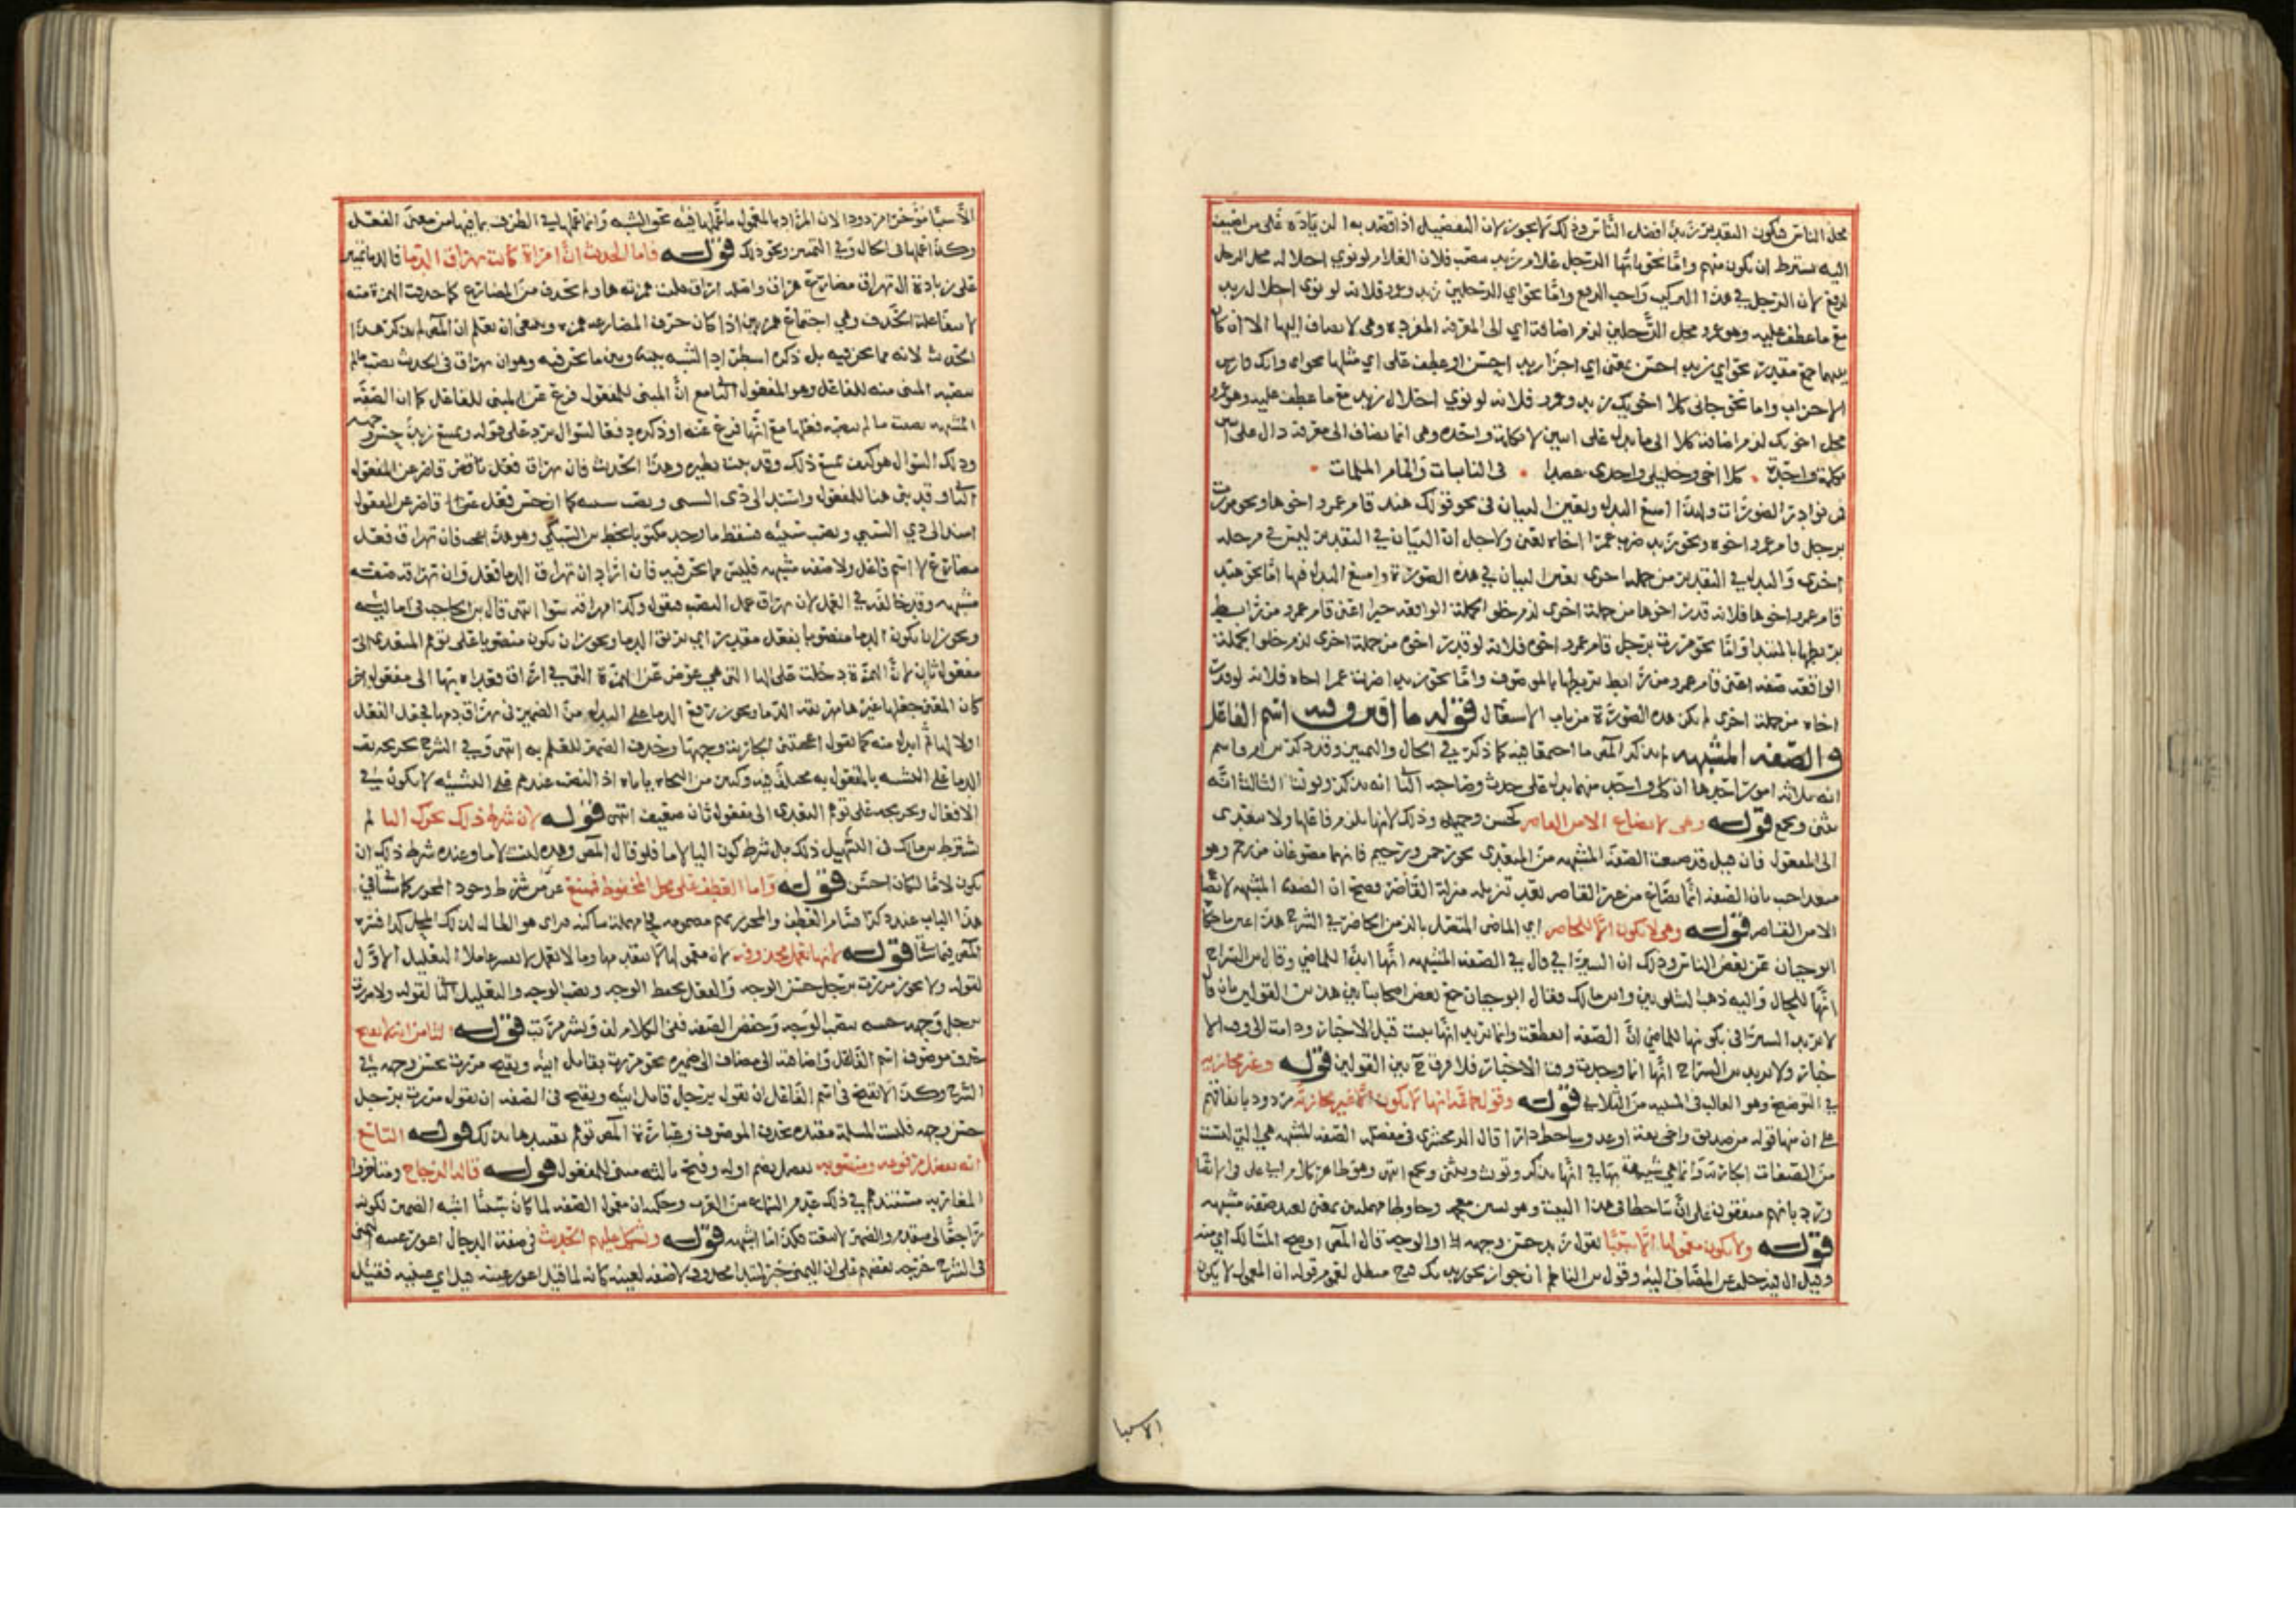 محل الناس فيكون التقدير زيد افضل الناس وذلك لا يجوز لان التفضيل اذا قصد به الزيادة على من اضيف
اليه يشترط ان يكون منهم واما نحو يا ايها الرجل غلام زيد فلان الغلام لو نوي احلاله محل الرجل
لرفع لان الرجل في هذا التركيب واجب الرفع واما نحو اي الرجلين زيد وعمرو فلانه لو نوي احلال زيد
مع ما عطف عليه وهو عمرو محل الرجلين لزم اضافة اي الى المعرفة المفردة وهي لا تضاف اليها الا ان كان
بينهما جمع مقدر نحو اي زيد احسن بمعنى اي اجزا زيد احسن او عطف على اي مثلها نحو اي وايك فارس
الاحزاب واما نحو جاني كلا اخويك زيد وعمرو فلانه لو نوي احلال زيد مع ما عطف عليه وهو عمرو
محل اخويك لزم اضافة كلا الى ما يدل على اثنين لا بكلمة واحدة وهي انما تضاف الى معرفة دال على اثنين
بكلمة واحدة كلا اخي وخليلي واجدي عضدا في النائبات والمام الملمات
فمن نوادر الضرورات ولهذا امتنع البدل وتعين البيان في نحو قولك هند قام عمرو اخوها ونحو مررت
برجل قام عمرو اخوه ونحو زيد ضربت عمرا اخاه تعين ولاجل ان البيان في التقدير ليس من جملة
اخرى والبدل في التقدير من جملة اخرى تعين البيان في هذه الصورة وامتنع البدل فيها اما نحو هند
قام عمرو اخوها فلانه لو قدرت اخوها من جملة اخرى لزم خلو الجملة الواقعة خبرا اعني قام عمرو من رابط
يربطها بالمبتدا واما نحو مررت برجل قام عمرو اخوه فلانه لو قدرت اخوه من جملة اخرى لزم خلو الجملة
الواقعة صفة اعني قام عمرو من رابط يربطها بالموصوف واما نحو زيد ضربت عمرا اخاه فلانه لو قدرت
اخاه من جملة اخرى لم تكن هذه الصورة من باب الاشتغال قوله ما افترق فيه اسم الفاعل
والصفة المشبهة لم يذكر المص ما اجتمعا فيه كما ذكر في الحال والتمييز وقد ذكر ابن ام قاسم
انه ثلاثة امور احدها ان كل واحد منهما يدل على حدث وصاحبه الثاني انه يذكر ويونث الثالث انه
يثنى ويجمع قوله وهي لا تصاغ الا من القاصر كحسن وجميل وذلك لانها تلزم فاعلها ولا تتعدى
الى المفعول فان قيل قد صيغت الصفة المشبهة من المتعدي نحو رحمن ورحيم فانهما مصوغان من رحم وهو
متعد اجيب بان الصفة انما تصاغ من غير القاصر بعد تنزيله منزلة القاصر فصح ان الصفة المشبهة لا تصاغ
الا من القاصر قوله وهي لا تكون الا للحاضر اي الماضي المتصل بالزمن الحاضر في الشرح هذا
ابو حيان عن بعض الناس وذلك ان السيرافي قال في الصفة المشبهة انها ابدا للماضي وقال ابن السراج
انها للحال واليه ذهب الشلوبين وابن مالك فقال ابو حيان جمع بعض اصحابنا بين هذين القولين بان قال
لا يريد السيرافي بكونها للماضي ان الصفة انقطعت وانما يريد انها ثبتت قبل الاخبار ودامت الى وقت الا
خبار ولا يريد ابن السراج انها انما وجدت وقت الاخبار فلا فرق ح بين القولين قوله وغير مجارية
في التوضيح وهو الغالب في المبنية من الثلاثي قوله وقول جماعة انها لا تكون الا غير مجارية مردود باتفاقهم
على ان منها قوله من صديق واخي ثقة او عدو شاحط دارا قال الزمخشري في مفصله الصفة المشبهة هي التي ليست
من الصفات الجارية وانما هي شبيهة بها في انها تذكر وتونث وتثنى وتجمع انتهى وهو ظاهر كلام ابي علي في الايضاح
ورد بانهم متفقون على ان شاحطا في هذا البيت وهو بشين معجمة وحا وطا مهملتين بمعنى بعيد صفة مشبهة
قوله ولا يكون معمولها الا سببيا تقول زيد حسن وجهه او الوجه قال المص في اوضح المسالك اي منه
وقيل ال فيه خلف عن المضاف اليه وقول ابن الناظم ان جواز نحو زيد بك فرح مبطل لعموم قوله ان المعمول لا يكون
الاسبيا
الا سببيا موخرا مردود لان المراد بالمعمول ما عملها فيه نحو الشبه وانما عملها في الظرف بما فيها من معنى الفعل
وكذا عملها في الحال وفي التمييز ونحو ذلك قوله فاما الحديث ان امراة كانت تهراق الدما فالدما تمييز
على زيادة ال تهراق مضارع هراق واصله اراق قلبت همزته ها ولم تحذف من المضارع كما حذفت الهمزة منه
لانتفا علة الحذف وهي اجتماع همزتين اذا كان حرف المضارعة همزة وينبغي ان تعلم ان المص لم يذكر هذا
الحديث لانه مما نحن فيه بل ذكره استطرادا للشبه بينه وبين ما نحن فيه وهو ان تهراق في الحديث نصب ما لم
ينصبه المبني منه للفاعل وهو المفعول الثاني مع ان المبني للمفعول فرع عن المبني للفاعل كما ان الصفة
المشبهة نصبت ما لم ينصبه فعلها مع انها فرع عنه او ذكره دفعا لسوال يرد على قوله ويمتنع زيد حسن وجهه
وذلك السوال هو كيف يمتنع ذلك وقد سمع نظيره وهذا الحديث فان تهراق فعل ناقص قاصر عن المفعول
الثاني وقد بني هنا للمفعول واسند الى ذي السببي ونصب سببه كما ان حسن فعل قاصر عن المفعول
اسند الى ذي السببي ونصب سببه فسقط ما وجد مكتوبا بخط ابن السبكي وهو هذا عجب فان تهراق فعل
مضارع لا اسم فاعل ولا صفة مشبهة فليس مما نحن فيه فان اراد ان تهراق الدما فعل وان تهراق صفة
مشبهة وقد خالفه في العمل لان تهراق عمل النصب فنقول وكذا مهراقه سوا انتهى قال ابن الحاجب في اماليه
ويجوز ان يكون الدما منصوبا بفعل مقدر اي تريق الدما ويجوز ان يكون منصوبا على توهم المتعدي الى
مفعول ثان لان الهمزة دخلت على الها التي هي عوض عن الهمزة التي في اراق فعداه بها الى مفعول اخر
كان المعنى جعلها غيرها تهريق الدما ويجوز رفع الدما على البدل من الضمير في تهراق
اولا لها ثم ابدل منه كما تقول اعجبتني الجارية وجهها وحذف الضمير للعلم به انتهى وفي الشرح تخريجه نصب
الدما على التشبيه بالمفعول به محله فيه وكثير من النحاة ياباه اذ النصب عندهم على التشبيه لا يكون في
الافعال وتخريجه على توهم التعدي الى مفعول ثان ضعيف انتهى قوله لان شرط ذلك تحرك اليا لم
يشترط ابن مالك في التسهيل ذلك بل شرط كون اليا لاما فلو قال المص وهذه ليست لاما وعنده شرط ذلك ان
تكون لاما لكان احسن قوله واما العطف على محل المخفوض فممتنع عن من شرط وجود المحرز كما سياتي
هذا الباب عند ذكر اقسام العطف والمحرز بميم مضمومة فحا مهملة ساكنة فراي هو الطالب لذلك المحل كذا فسره
المص فيما ياتي قوله لانها لا تعمل محذوفة لان معمولها لا يتقدمها وما لا يعمل لا يفسر عاملا التعليل الاول
لقوله ولا يجوز مررت برجل حسن الوجه والفعل بخفض الوجه ونصب الوجه والتعليل الثاني لقوله ولا مررت
برجل وجهه حسنه بنصب الوجه وخفض الصفة ففي الكلام لف ونشر مرتب قوله الثامن انه لا يقبح
حذف موصوف اسم الفاعل واضافته الى مضاف الى ضميره نحو مررت بقاتل ابيه ويقبح مررت بحسن وجهه في
الشرح وكذا لا يقبح في اسم الفاعل ان تقول برجل قاتل ابيه ويقبح في الصفة ان تقول مررت برجل
حسن وجهه فليست المسلة مقيدة بحذف الموصوف وعبارة المص توهم تقييدها بذلك قوله التاسع
انه يفصل مرفوعه ومنصوبه يفصل بضم اوله وفتح ثالثه مبني للمفعول قوله قاله الزجاج ومتاخروا
المغاربة مستندهم في ذلك عدم السماع من العرب وحكمه ان معمول الصفة لما كان سببيا اشبه الضمير لكونه
راجعا الى متقدم والضمير لا ينعت فكذا ما اشبهه قوله ويشكل عليهم الحديث في صفة الدجال اعور عينه اليمنى
في الشرح خرجه بعضهم على ان اليمنى خبر لمبتدا محذوف لا صفة لعينه كانه لما قيل اعور عينه قيل اي عينيه فقيل